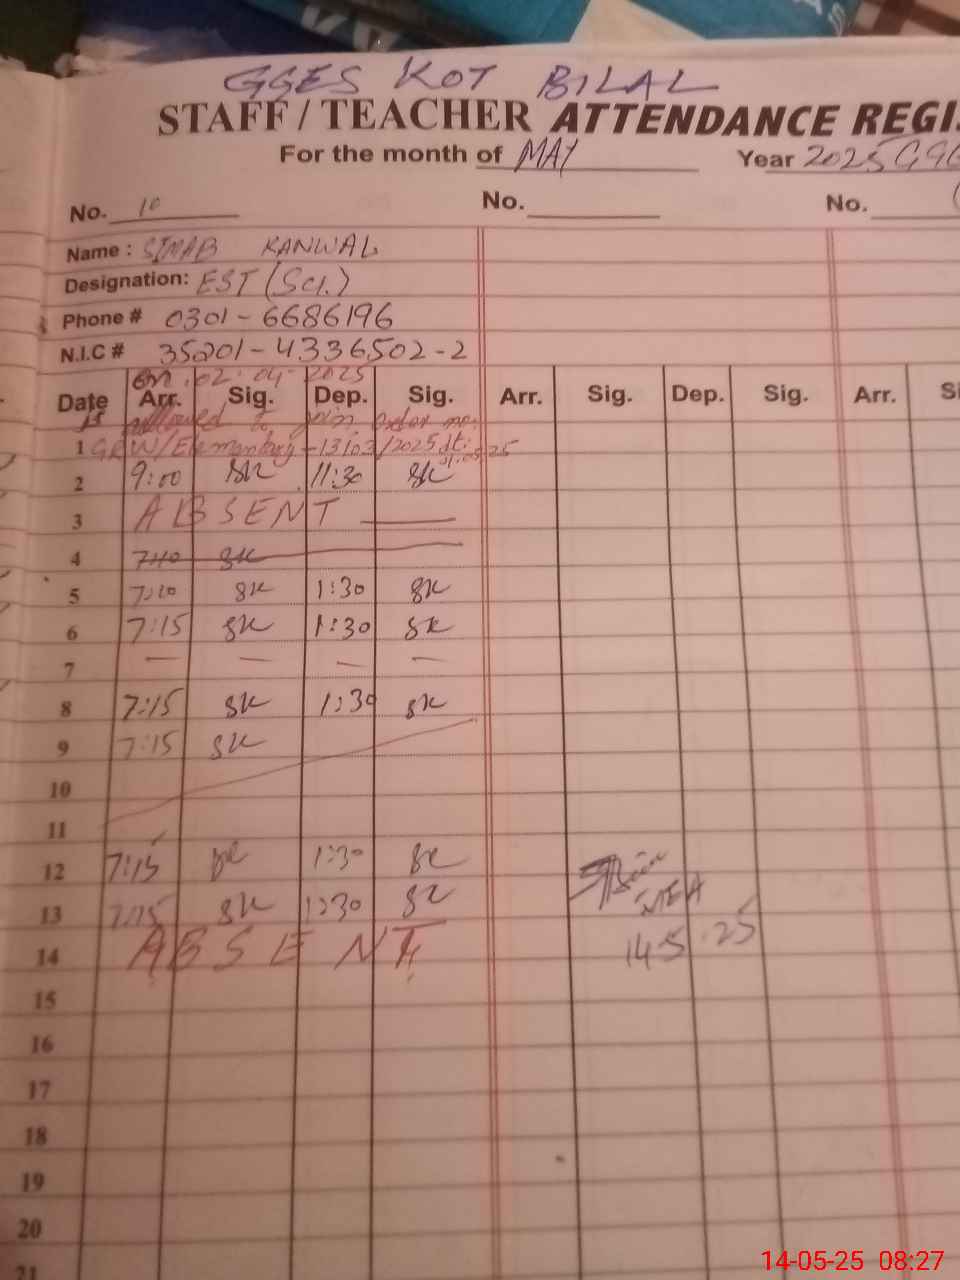 GGES KOT BILAL
STAFF / TEACHER ATTENDANCE REGI
For the month of MAY Year 2025 GGE
No. 10 No. No.
Name : SIMAB KANWAL
Designation: EST (Sci.)
Phone # 0301-6686196
N.I.C # 35201-4336502-2
on. 02.04-2025
Date Arr. Sig. Dep. Sig. Arr. Sig. Dep. Sig. Arr. Si
allowed to join order no.
1 GRW/Elementary-13103/2025 dt:
2 9:00 SK 11:30 SK
3 ABSENT
4 7:10 SK
5 7:10 SK 1:30 SK
6 7:15 SK 1:30 SK
7 — — — —
8 7:15 SK 1:30 SK
9 7:15 SK
10
11
12 7:15 SK 1:30 SK
13 7:15 SK 1:30 SK
MEA
14 ABSENT 14-5-25
15
16
17
18
19
20
21
14-05-25 08:27